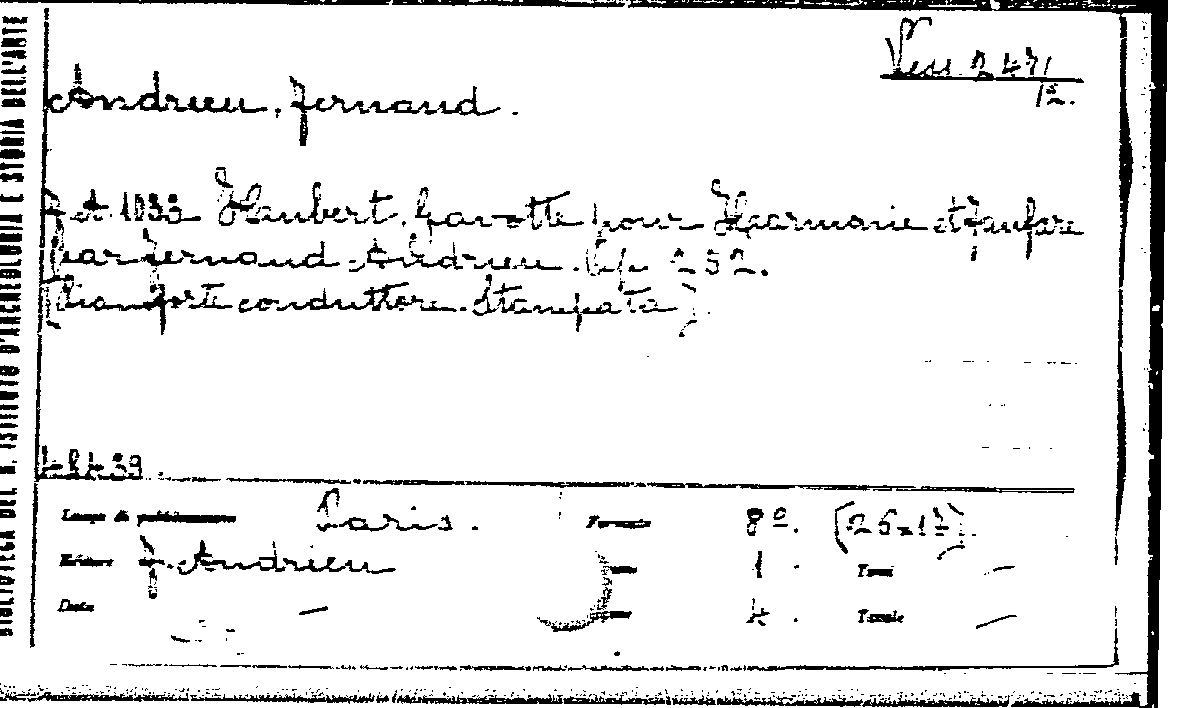 BIBLIOTECA DEL R. ISTITUTO D'ARCHEOLOGIA E STORIA DELL'ARTE
Vess 247/
12.
Andrieu, Fernand.
F A 1033 Flaubert, Gavotte pour Harmonie et Fanfare
par Fernand Andrieu. 252.
(Pianforte conduttore. Stampata)
Luogo di pubblicazione Paris. Formato 8º. (26x17).
Editore F. Andrieu 1. Tomi —
Data — 4. Tavole —